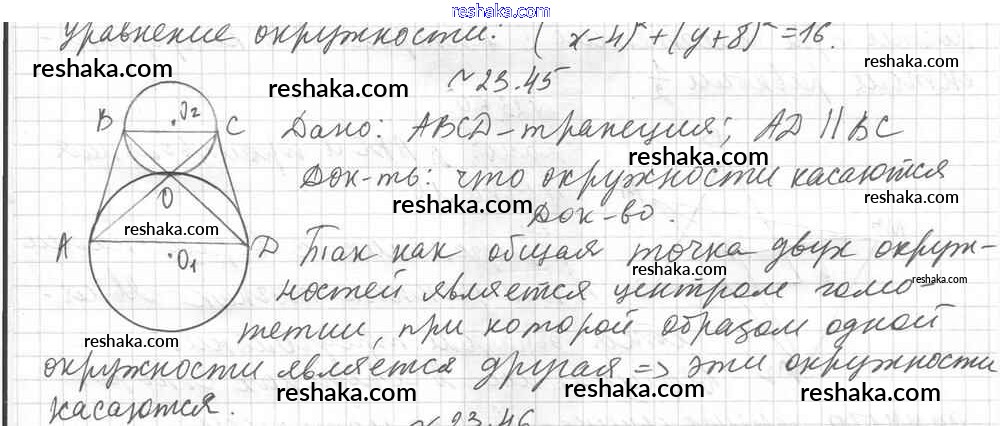 reshaka.com
Уравнение окружности: (x-4)² + (y+8)² = 16.
reshaka.com
№23.45
reshaka.com
reshaka.com
B O₂ C
Дано: ABCD-трапеция; AD || BC
reshaka.com
Док-ть: что окружности касаются
O
reshaka.com
Док-во.
reshaka.com
A D
Так как общая точка двух окруж-
O₁
reshaka.com
reshaka.com
ностей является центром гомо-
тетии, при которой образом одной
reshaka.com
reshaka.com
reshaka.com
окружности является другая => эти окружности
касаются.
reshaka.com
reshaka.com
reshaka.com
№23.46